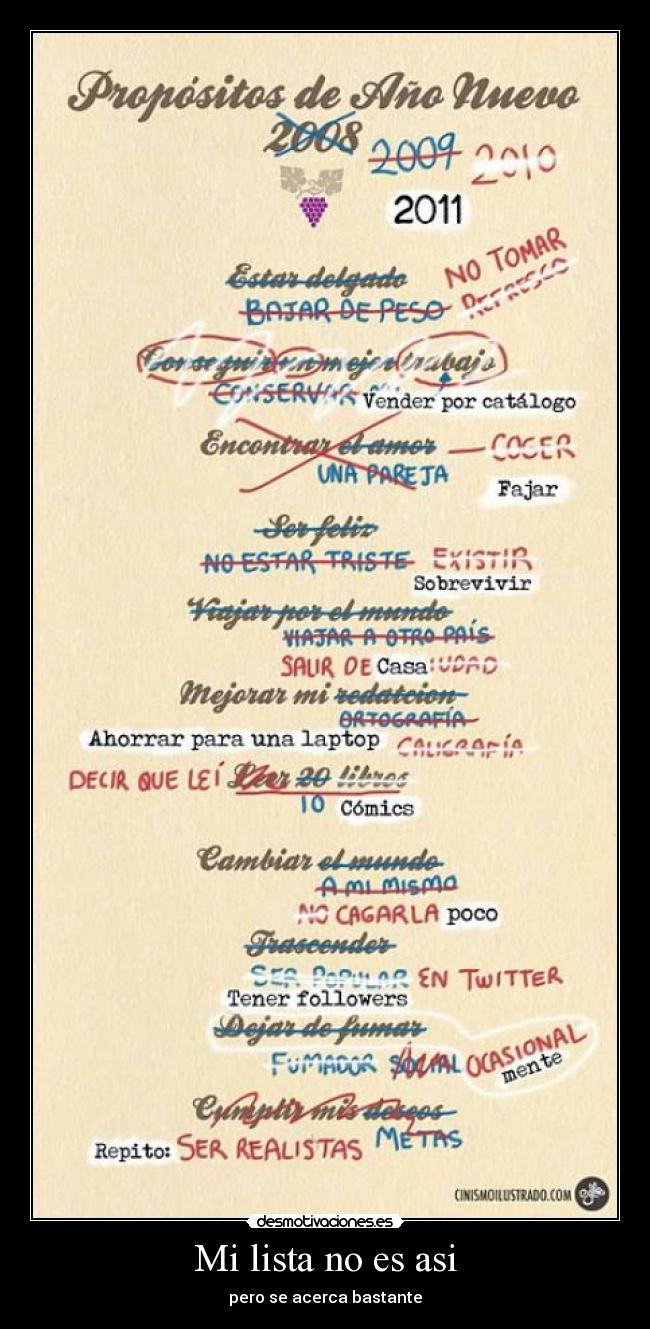 Propósitos de Año Nuevo
2008 2009 2010
2011
Estar delgado NO TOMAR
BAJAR DE PESO REFRESCO
Conseguir un mejor trabajo
CONSERVAR Vender por catálogo
Encontrar el amor — COGER
UNA PAREJA
Fajar
Ser feliz
NO ESTAR TRISTE EXISTIR
Sobrevivir
Viajar por el mundo
VIAJAR A OTRO PAÍS
SALIR DE Casa IUDAD
Mejorar mi redatcion
ORTOGRAFÍA
Ahorrar para una laptop CALIGRAFÍA
DECIR QUE LEÍ Leer 20 libros
10 Cómics
Cambiar el mundo
A MI MISMO
NO CAGARLA poco
Trascender
SER POPULAR EN TWITTER
Tener followers
Dejar de fumar
FUMADOR SOCIAL OCASIONAL
mente
Cumplir mis deseos
METAS
Repito: SER REALISTAS
CINISMOILUSTRADO.COM
desmotivaciones.es
Mi lista no es asi
pero se acerca bastante